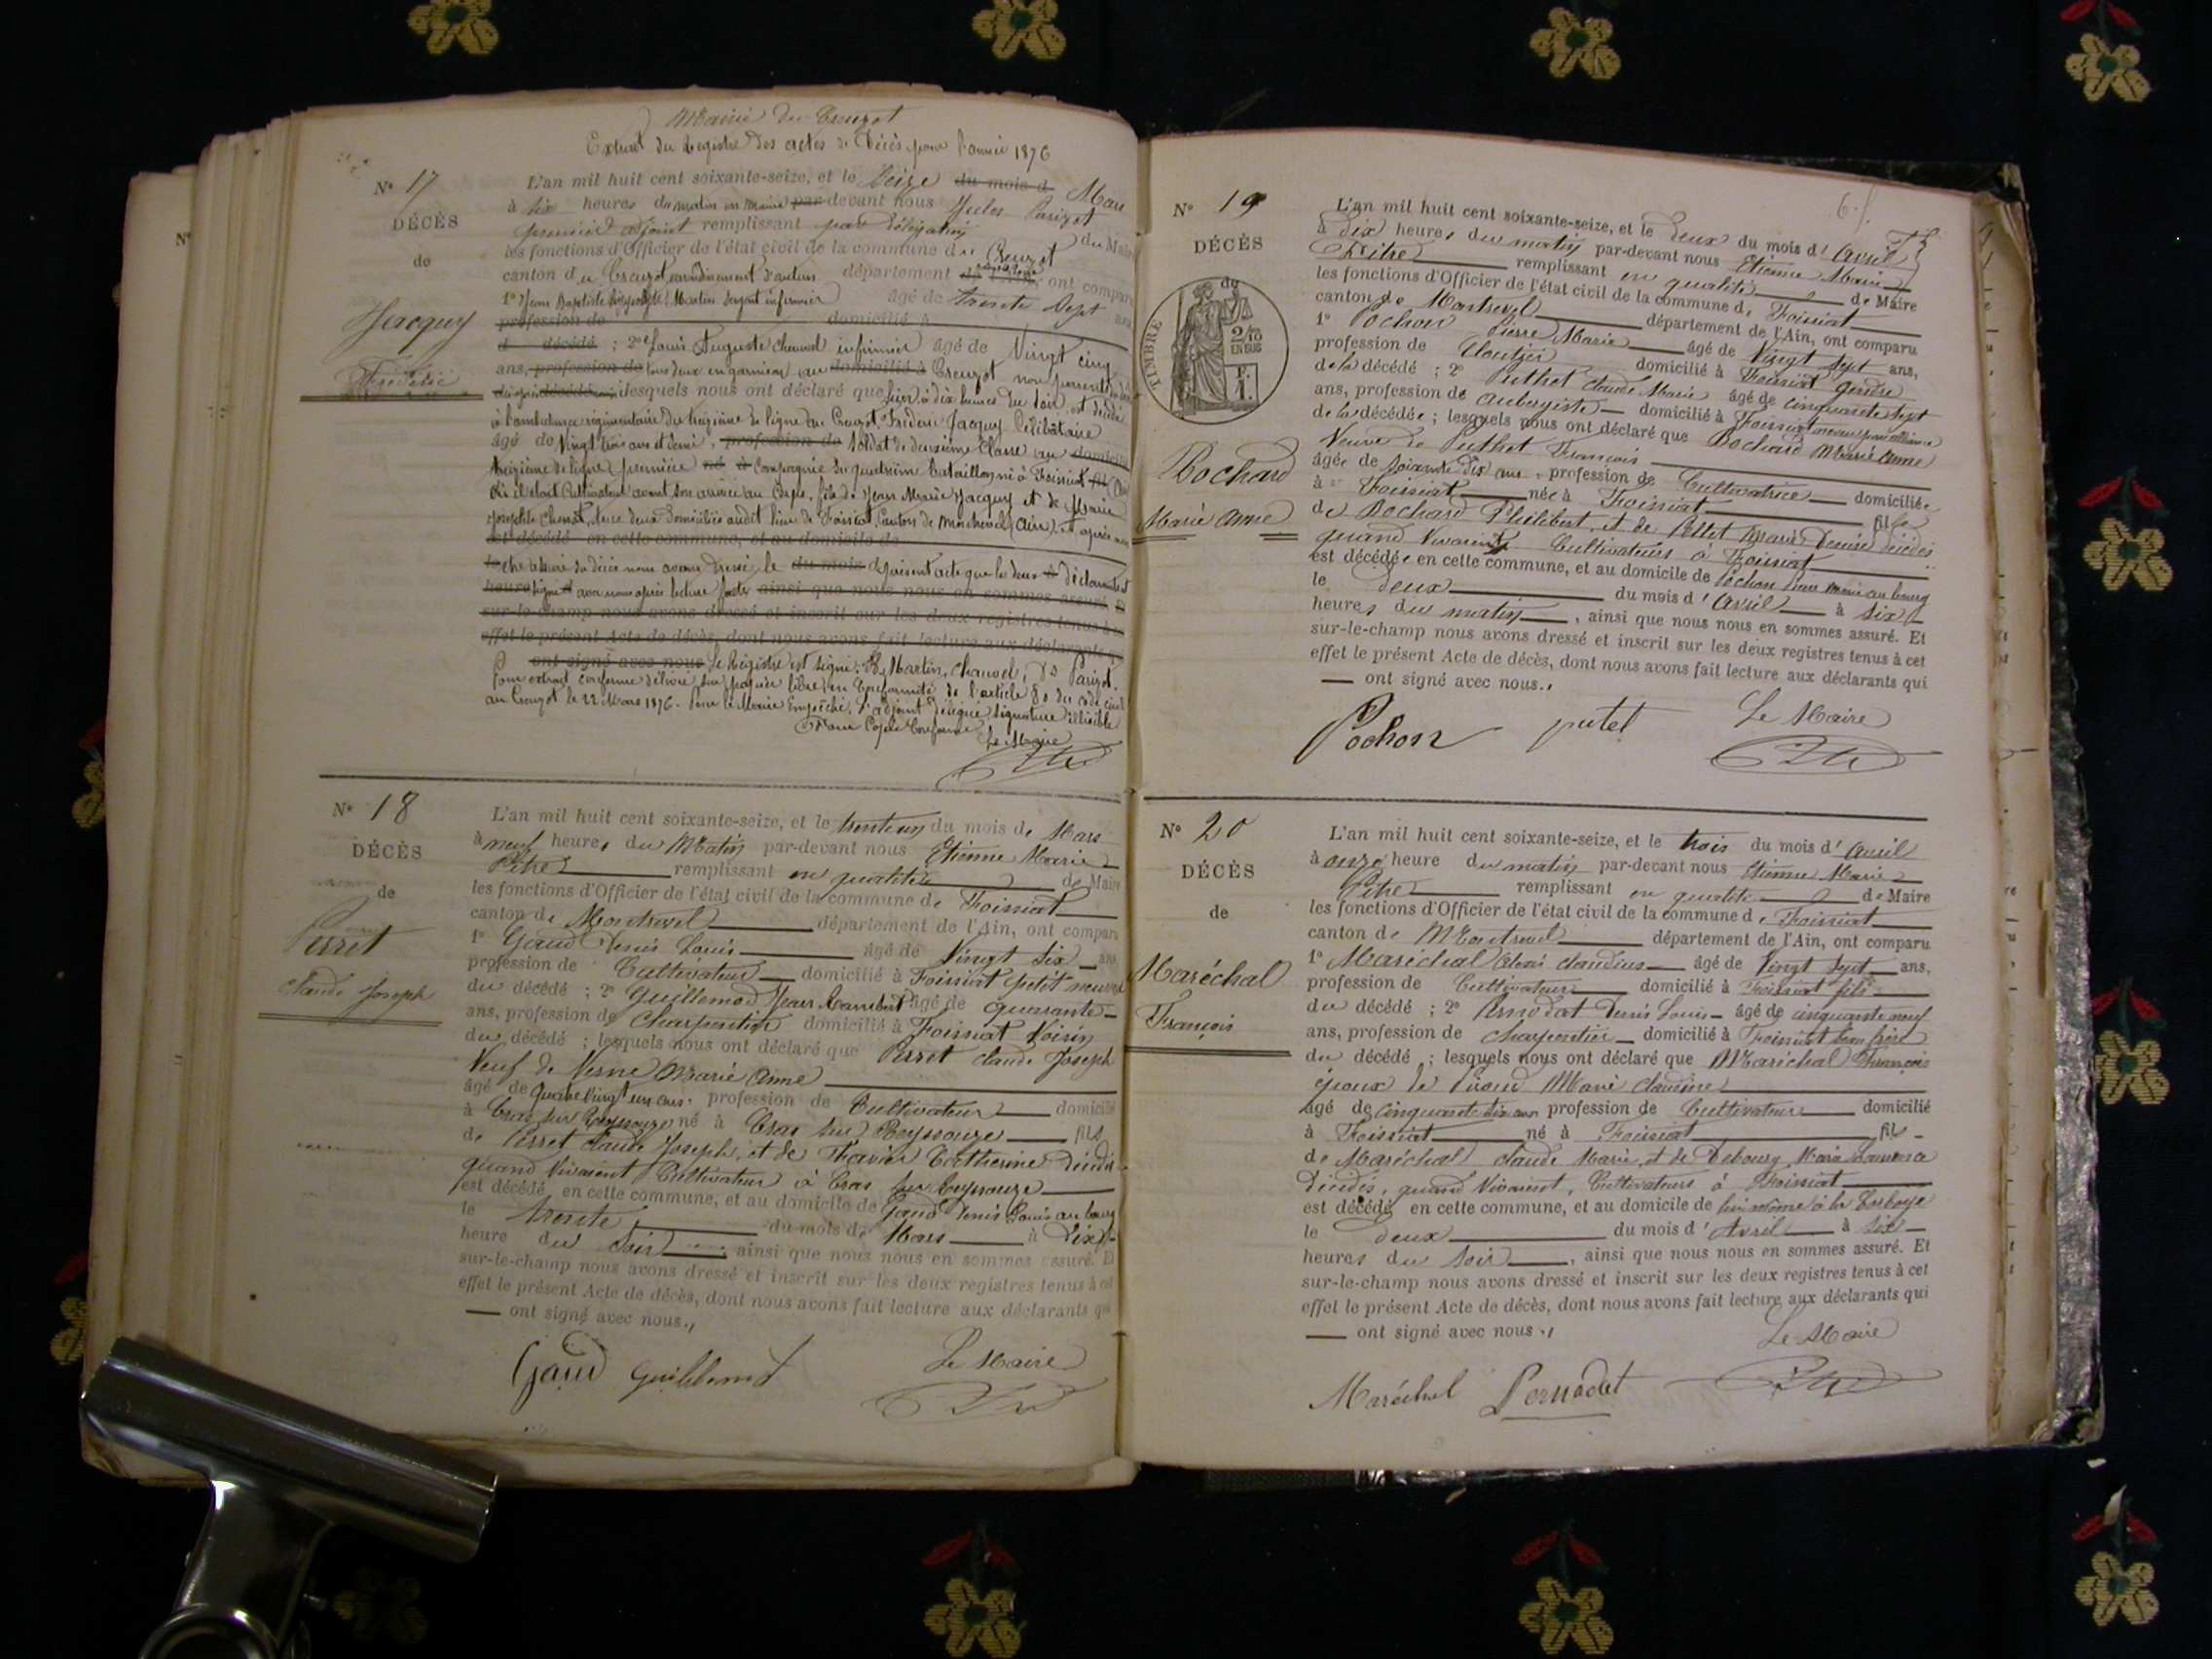 Mairie du Creuzot
Extrait du Registre des actes de Décès pour l'année 1876
N° 17
DÉCÈS
de
Jacquy
Frédéric
L'an mil huit cent soixante-seize, et le seize du mois d Mars
à six heures du matin en mairie par devant nous Jules Parizot
premier adjoint remplissant par délégation du Maire
les fonctions d'Officier de l'état civil de la commune du Creuzot
canton du Creuzot arrondissement d'autun département ont comparu
1° Jean Baptiste Martin Sergent infirmier âgé de trente Sept ans
profession de domicilié à
d décédé ; 2° Louis Auguste Chauvel infirmier âgé de Vingt cinq
ans, profession de tous deux en garnison au domicilié à Creuzot non parents
décédé lesquels nous ont déclaré que hier à dix heures du soir, est décédé
à l'ambulance régimentaire du treizième de ligne au Creuzot, Frédéric Jacquy Célibataire
âgé de Vingt trois ans et demi, profession de Soldat de deuxième Classe au domicilié
treizième de ligne première né à Compagnie du quatrième bataillon né à Foissiat fil (Ain)
où il était Cultivateur avant son arrivée au Corps, fils de Jean Marie Jacquy et de Marie
Josephte Chanel, tous deux domiciliés audit lieu de Foissiat, Canton de Montrevel (Ain). et après
est décédé en cette commune, et au domicile de
le du décès nous avons dressé le du mois présent acte que les deux à déclarants
heure signé avec nous après lecture faite ainsi que nous nous en sommes assuré. Et
sur-le-champ nous avons dressé et inscrit sur les deux registres tenus à cet
effet le présent Acte de décès, dont nous avons fait lecture aux déclarants qui
ont signé avec nous le Registre est signé: Martin, Chauvel, Parizot.
Pour extrait conforme délivré sur papier libre en Conformité de l'article 80 du Code civil
au Creuzot le 22 Mars 1876. Pour le Maire Empêché, l'adjoint délégué, Signature illisible
Pour Copie Conforme
Le Maire
N° 18
DÉCÈS
de
Perret
Claude Joseph
L'an mil huit cent soixante-seize, et le trente un du mois de Mars
à neuf heures du Matin par-devant nous Etienne Marie
Pitre remplissant en qualité de Maire
les fonctions d'Officier de l'état civil de la commune de Foissiat
canton de Montrevel département de l'Ain, ont comparu
1° Gaud Denis Louis âgé de Vingt Six ans,
profession de Cultivateur domicilié à Foissiat petit neveu
du décédé ; 2° Guillemod Jean Lambert âgé de quarante
ans, profession de Charpentier domicilié à Foissiat Voisin
du décédé ; lesquels nous ont déclaré que Perret Claude Joseph
Veuf de Vesne Marie Anne
âgé de quatre Vingt un ans. profession de Cultivateur domicilié
à Cras sur Reyssouze né à Cras sur Reyssouze fils
de Perret Claude Joseph, et de Favier Catherine Décédés
quand Vivaient Cultivateur à Cras sur Reyssouze
est décédé en cette commune, et au domicile de Gaud Denis Louis au bourg
le trente du mois de Mars à Dix
heure du Soir ainsi que nous nous en sommes assuré. Et
sur-le-champ nous avons dressé et inscrit sur les deux registres tenus à cet
effet le présent Acte de décès, dont nous avons fait lecture aux déclarants qui
ont signé avec nous.
Gaud Guillemod Le Maire
N° 19
DÉCÈS
de
TIMBRE
2/10
EN SUS
Bochard
Marie Anne
L'an mil huit cent soixante-seize, et le Deux du mois d'Avril
à dix heures du matin par-devant nous Etienne Marie
Pitre remplissant en qualité de Maire
les fonctions d'Officier de l'état civil de la commune de Foissiat
canton de Montrevel département de l'Ain, ont comparu
1° Pochon Pierre Marie âgé de Vingt Sept ans,
profession de Cloutier domicilié à Foissiat Gendre
de la décédé ; 2° Puthet Claude Marie âgé de cinquante Sept
ans, profession de Aubergiste domicilié à Foissiat neveu par alliance
de la décédée ; lesquels nous ont déclaré que Bochard Marie Anne
Veuve de Puthet François
âgée de soixante dix ans, profession de Cultivatrice domiciliée
à Foissiat née à Foissiat fille
de Bochard Philibert, et de Pellet Marie Denise Décédés
quand Vivaient Cultivateurs à Foissiat
est décédée en cette commune, et au domicile de Pochon Pierre Marie au bourg
le deux du mois d'Avril à six
heures du matin, ainsi que nous nous en sommes assuré. Et
sur-le-champ nous avons dressé et inscrit sur les deux registres tenus à cet
effet le présent Acte de décès, dont nous avons fait lecture aux déclarants qui
ont signé avec nous.
Pochon putet Le Maire
N° 20
DÉCÈS
de
Maréchal
François
L'an mil huit cent soixante-seize, et le trois du mois d'Avril
à onze heure du matin par-devant nous Etienne Marie
Pitre remplissant en qualité de Maire
les fonctions d'Officier de l'état civil de la commune de Foissiat
canton de Montrevel département de l'Ain, ont comparu
1° Maréchal Alexis Claudius âgé de Vingt Sept ans,
profession de Cultivateur domicilié à Foissiat fils
du décédé ; 2° Denis Louis âgé de cinquante neuf
ans, profession de charpentier domicilié à Foissiat beau frère
du décédé ; lesquels nous ont déclaré que Maréchal François
époux de Marie Claudine
âgé de cinquante dix ans profession de Cultivateur domicilié
à Foissiat né à Foissiat fils
de Maréchal Claude Marie, et de Debourg Marie
Décédés, quand Vivaient, Cultivateurs à Foissiat
est décédé en cette commune, et au domicile de lui même à la
le deux du mois d'Avril à six
heures du soir, ainsi que nous nous en sommes assuré. Et
sur-le-champ nous avons dressé et inscrit sur les deux registres tenus à cet
effet le présent Acte de décès, dont nous avons fait lecture aux déclarants qui
ont signé avec nous.
Le Maire
Maréchal Pernodet